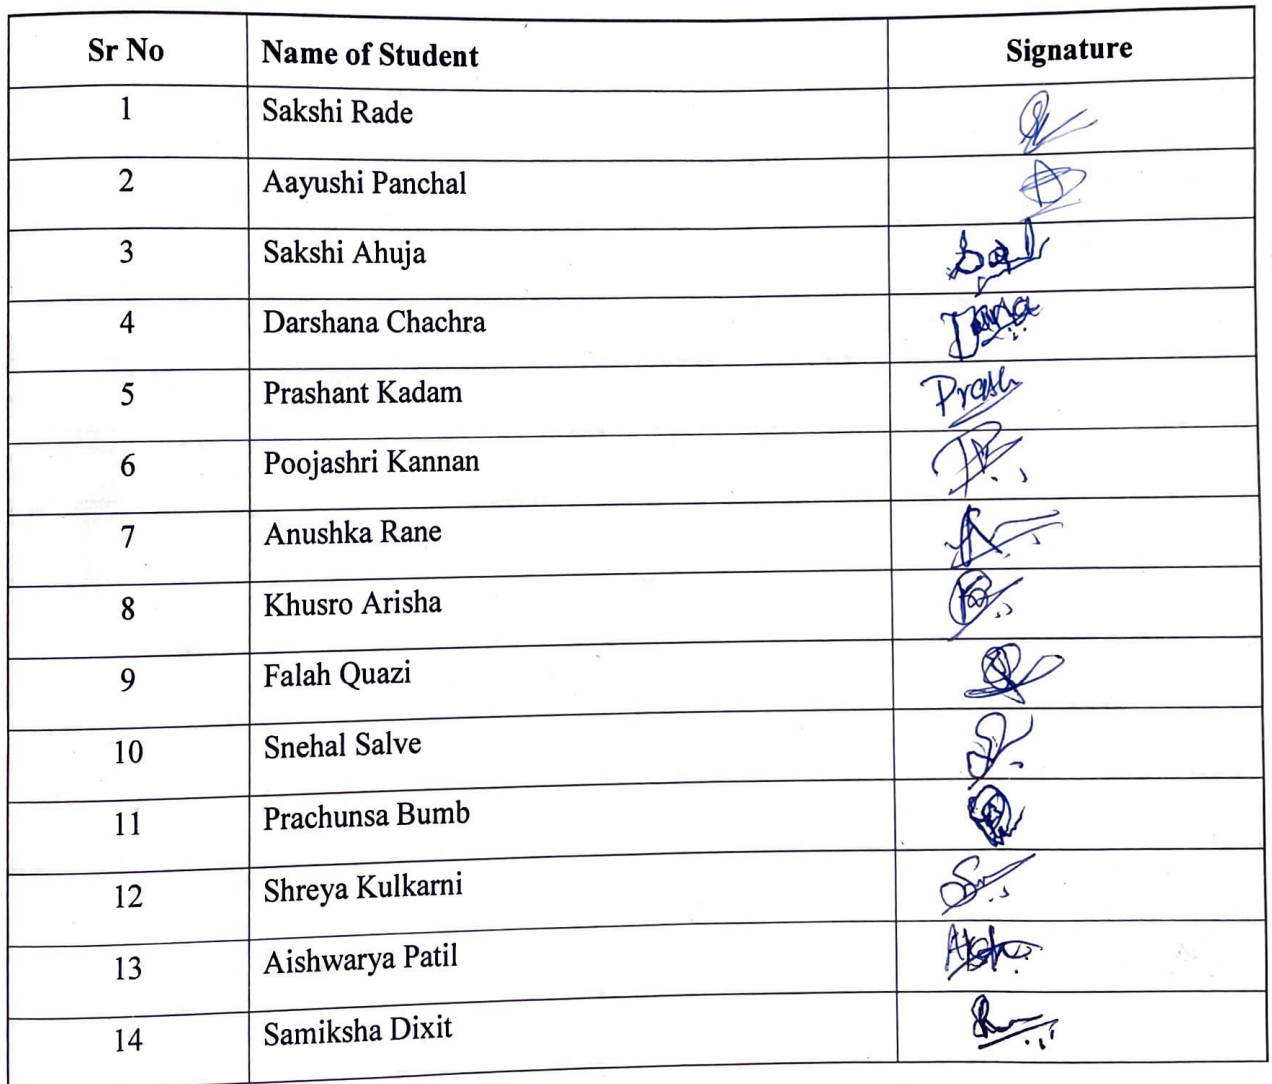 Sr No Name of Student Signature
1 Sakshi Rade
2 Aayushi Panchal
3 Sakshi Ahuja
4 Darshana Chachra
5 Prashant Kadam Prash
6 Poojashri Kannan
7 Anushka Rane
8 Khusro Arisha
9 Falah Quazi
10 Snehal Salve
11 Prachunsa Bumb
12 Shreya Kulkarni
13 Aishwarya Patil
14 Samiksha Dixit